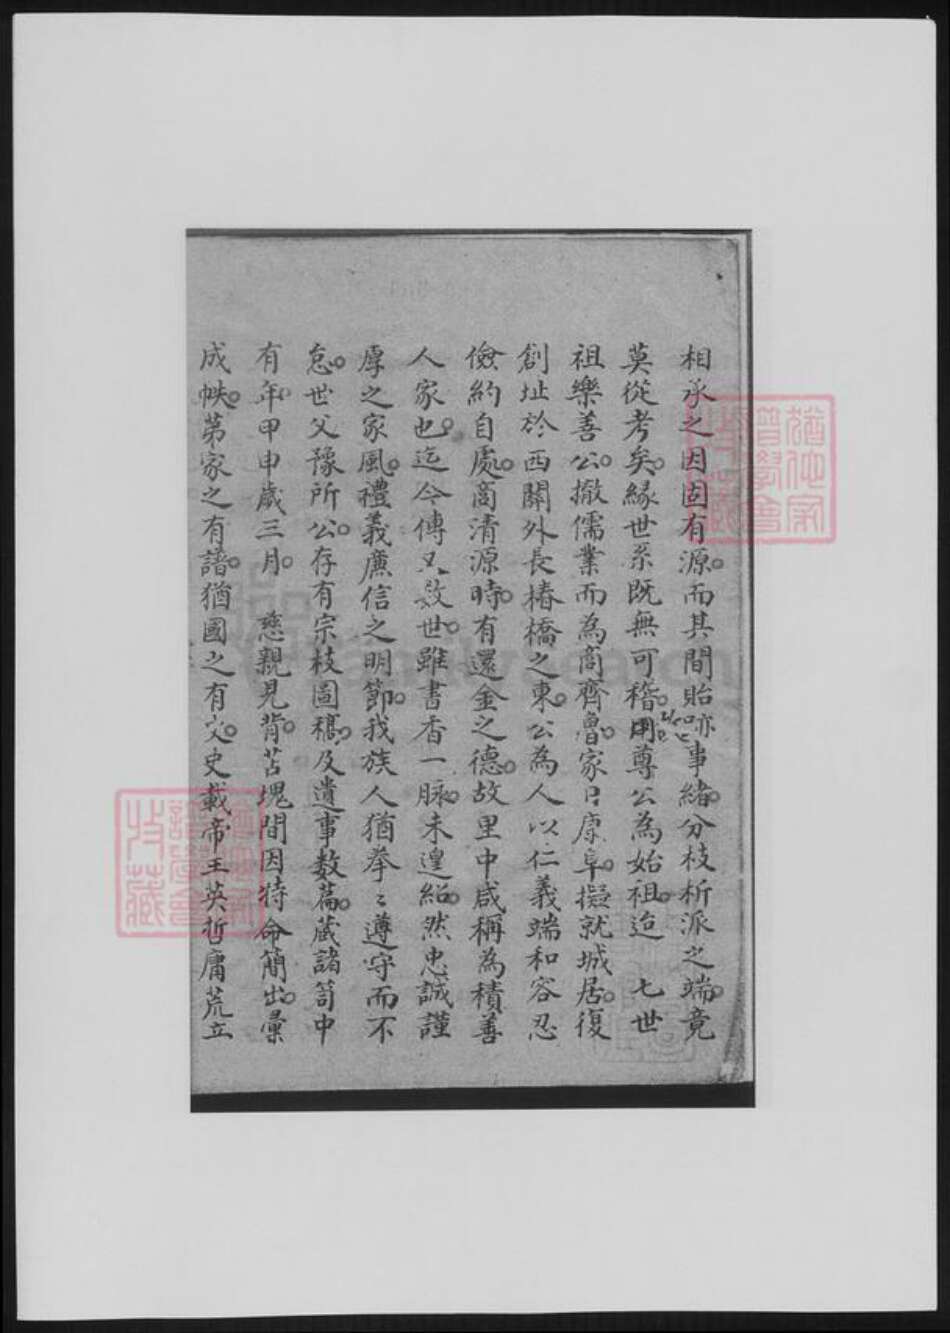 相承之因固有源。而其間貽跡事緒。分枝析派之端。竟
莫從考矣。緣世系既無可稽。用尊公為始祖。迨 七世
祖樂善公。撤儒業而為商齊魯。家口康阜。擬就城居。復
創址於西關外長椿橋之東。公為人以仁義端和容忍
儉約自處。商清源時。有還金之德。故里中咸稱為積善
人家也。迄今傳又數世。雖書香一脉。未遑紹。然忠誠謹
厚之家風。禮義廉信之明節。我族人猶拳〻遵守而不
怠。世父豫所公。存有宗枝圖稿。及遺事數篇。藏諸笥中
有年。甲申歲三月。 慈親見背。苫塊間因特命簡出。彙
成帙。第家之有譜。猶國之有史。史載帝王英哲庸荒立
猶他家
譜學會
收藏
猶他家
譜學會
收藏